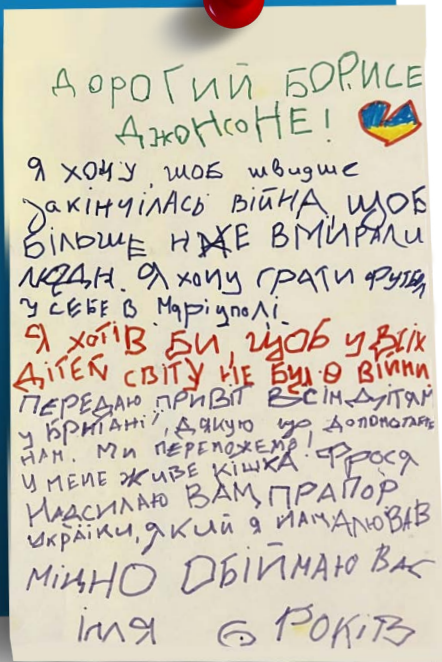 ДОРОГИЙ БОРИСЕ
ДЖОНСОНЕ!
Я ХОЧУ, ЩОБ швидше
закінчілАСЬ ВІЙНА, ЩОБ
БІЛЬШЕ НЖЕ ВМИРАЛИ
ЛЮДИ. Я хочу ГРАТИ ФУТБОЛ
У СЕБЕ В Маріуполі.
Я ХОТІВ БИ, ЩОБ У ВСІХ
ДІТЕЙ СВІТУ НЕ БУЛО ВІЙНИ
ПЕРЕДАЮ ПРИВІТ ВСІМ ДІТЯМ
У БРИТАНІЇ, ДЯКУЮ що ДОПОМОГАЕТЕ
НАМ. МИ ПЕРЕМОЖЕМО!
У МЕНЕ ЖИВЕ КІШКА ФРОСЯ
НАДСИЛАЮ ВАМ ПРАПОР
УКРАЇНИ, ЯКИЙ Я НАМАЛЮВАВ
МІЦНО ОБІЙМАЮ ВАС
ІЛЛЯ 6 РОКІВ